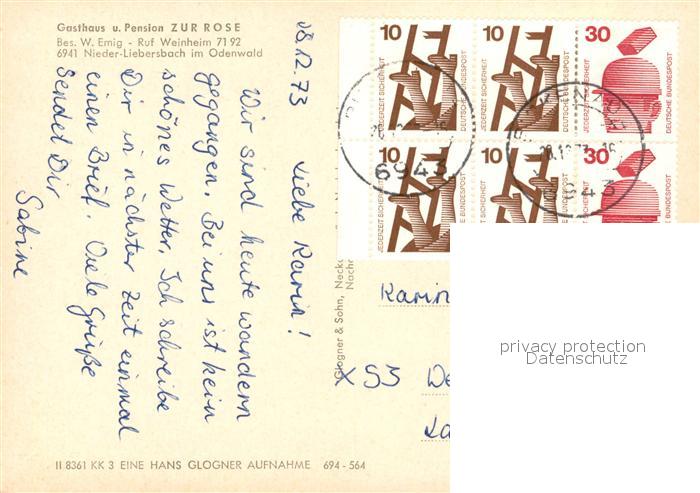 Gasthaus u. Pension ZUR ROSE
Bes. W. Emig - Ruf Weinheim 71 92
6941 Nieder-Liebersbach im Odenwald
28.12.73
Liebe Karin!
Wir sind heute wandern
gegangen. Bei uns ist kein
schönes Wetter. Ich schreibe
Dir in nächster Zeit einmal
einen Brief. Viele Grüße
sendet Dir
Sabine
Glogner & Sohn, Necka
Nache
10 JEDERZEIT SICHERHEIT DEUTSCHE BUNDESPOST
10 JEDERZEIT SICHERHEIT DEUTSCHE BUNDESPOST
30 JEDERZEIT SICHERHEIT DEUTSCHE BUNDESPOST
10 JEDERZEIT SICHERHEIT DEUTSCHE BUNDESPOST
10 JEDERZEIT SICHERHEIT DEUTSCHE BUNDESPOST
30 JEDERZEIT SICHERHEIT DEUTSCHE BUNDESPOST
6943
6943
Karin
X 53 We
privacy protection
Datenschutz
II 8361 KK 3 EINE HANS GLOGNER AUFNAHME 694 - 564